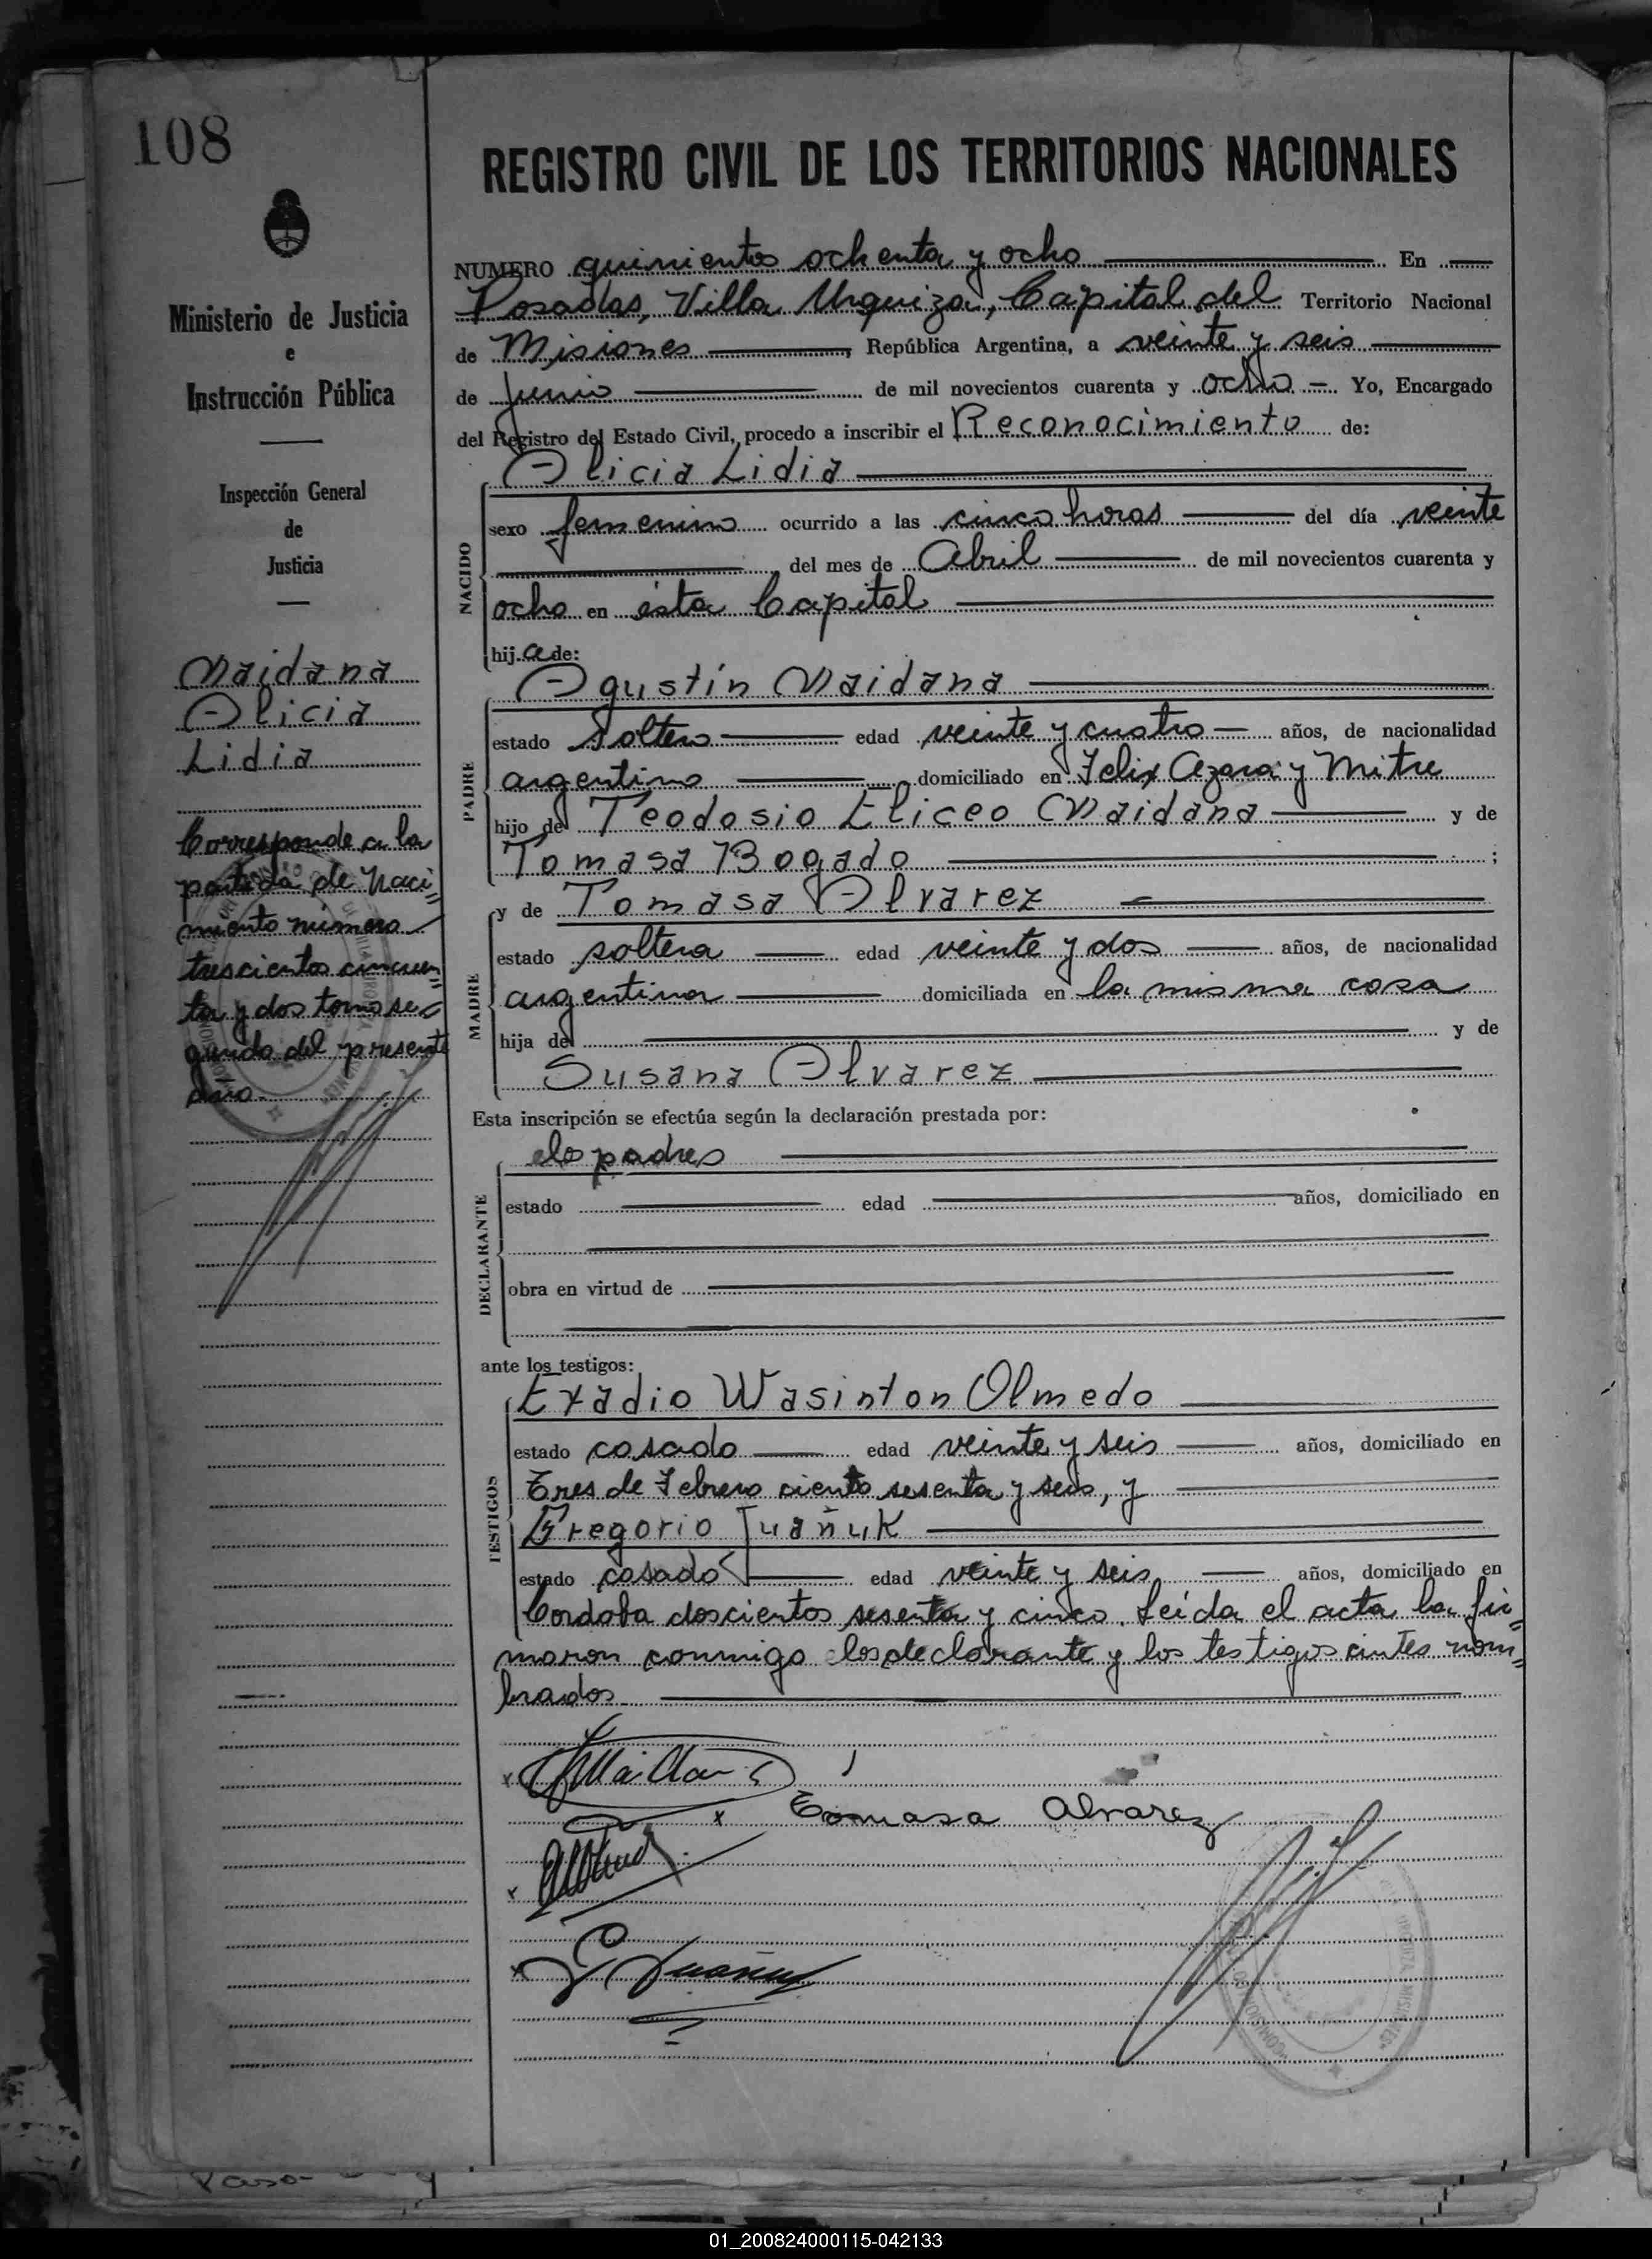 108
REGISTRO CIVIL DE LOS TERRITORIOS NACIONALES
Ministerio de Justicia
e
Instrucción Pública
Inspección General
de
Justicia
Maidana
Alicia
Lidia
Corresponde a la
partida de Naci-
miento número
trescientos cincuen
ta y dos tomo se-
gundo del presente
año.
NUMERO quinientos ochenta y ocho En
Posadas, Villa Urquiza, Capital del Territorio Nacional
de Misiones, República Argentina, a veinte y seis
de Junio de mil novecientos cuarenta y ocho Yo, Encargado
del Registro del Estado Civil, procedo a inscribir el Reconocimiento de:
Alicia Lidia
NACIDO
sexo femenino ocurrido a las cinco horas del día veinte
del mes de Abril de mil novecientos cuarenta y
ocho en ésta Capital
hija de:
Agustín Maidana
PADRE
estado soltero edad veinte y cuatro años, de nacionalidad
argentino domiciliado en Felix Azara y Mitre
hijo de Teodosio Eliceo Maidana y de
Tomasa Bogado ;
y de Tomasa Alvarez
MADRE
estado soltera edad veinte y dos años, de nacionalidad
argentina domiciliada en la misma casa
hija de y de
Susana Alvarez
Esta inscripción se efectúa según la declaración prestada por:
los padres
DECLARANTE
estado edad años, domiciliado en
obra en virtud de
ante los testigos:
Exadio Wasinton Olmedo
TESTIGOS
estado casado edad veinte y seis años, domiciliado en
Tres de Febrero ciento sesenta y seis, y
Gregorio Juañuk
estado casado edad veinte y seis años, domiciliado en
Cordoba doscientos sesenta y cinco. Leída el acta la fir-
maron conmigo los declarante y los testigos antes nom-
brados.
Tomasa Alvarez
01_200824000115-042133